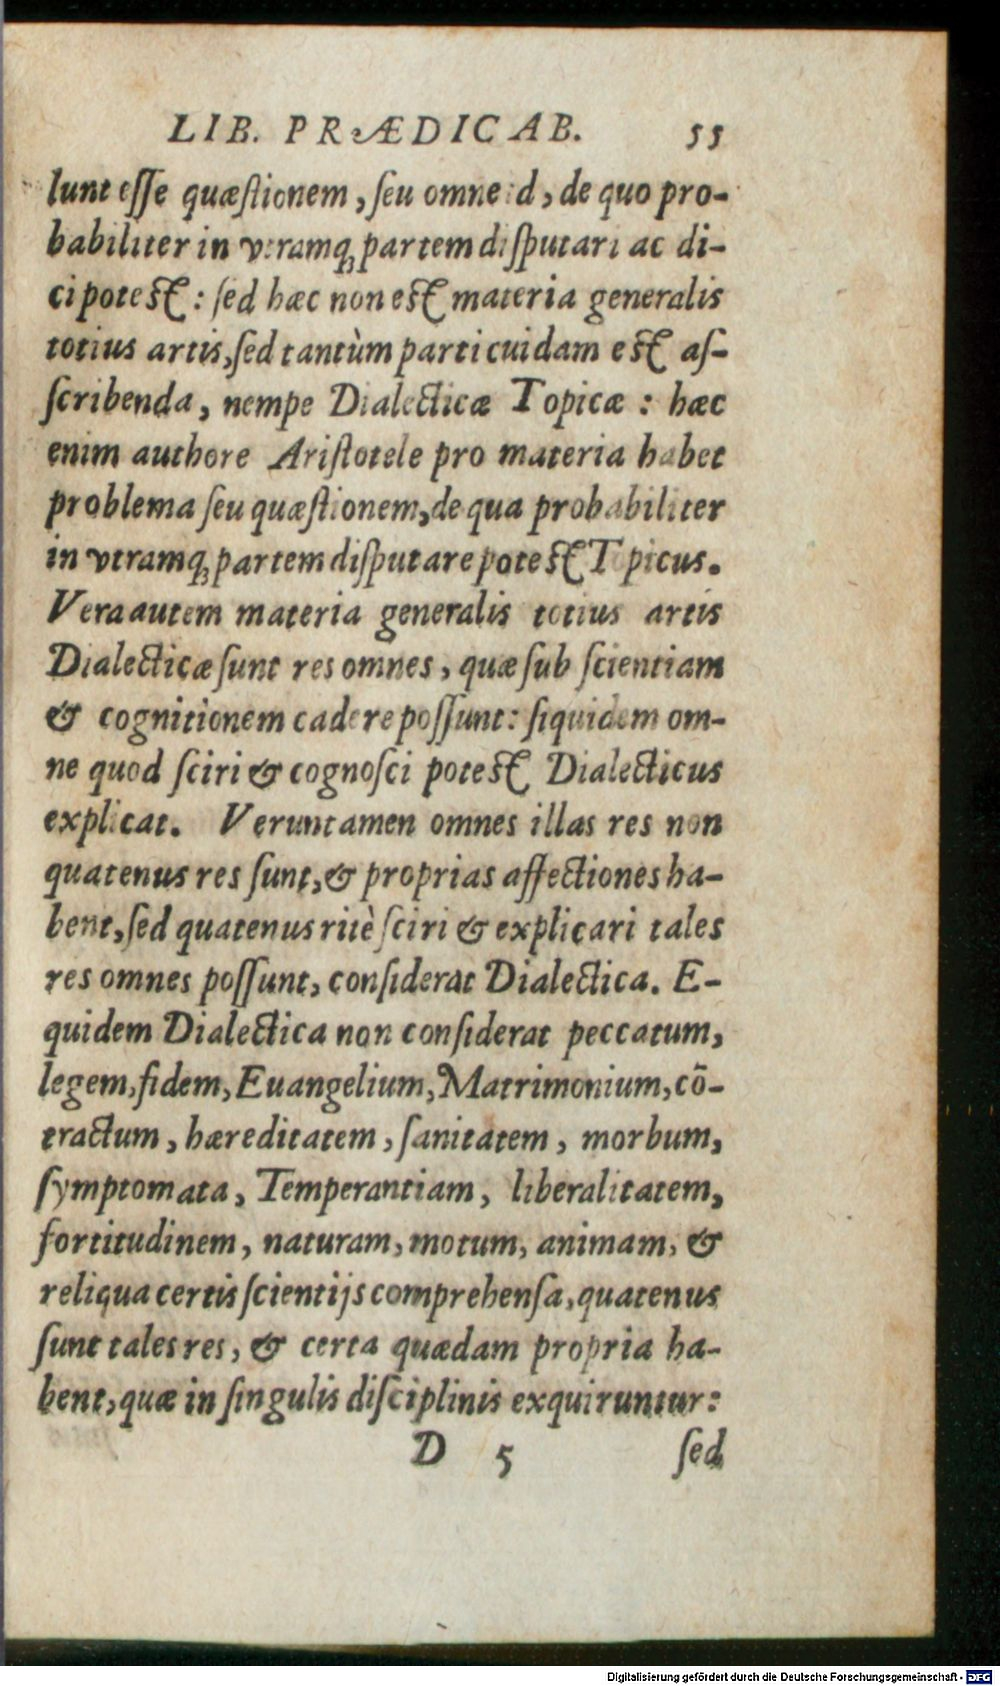 LIB. PRÆDICAB. 55
lunt esse quæstionem, seu omne id, de quo pro-
babiliter in vtramq; partem disputari ac di-
ci potest: sed hæc non est materia generalis
totius artis, sed tantùm parti cuidam est as-
scribenda, nempe Dialecticæ Topicæ: hæc
enim authore Aristotele pro materia habet
problema seu quæstionem, de qua probabiliter
in vtramq; partem disputare potest Topicus.
Vera autem materia generalis totius artis
Dialecticæ sunt res omnes, quæ sub scientiam
& cognitionem cadere possunt: siquidem om-
ne quod sciri & cognosci potest Dialecticus
explicat. Veruntamen omnes illas res non
quatenus res sunt, & proprias affectiones ha-
bent, sed quatenus ritè sciri & explicari tales
res omnes possunt, considerat Dialectica. E-
quidem Dialectica non considerat peccatum,
legem, fidem, Euangelium, Matrimonium, cō-
tractum, hæreditatem, sanitatem, morbum,
symptomata, Temperantiam, liberalitatem,
fortitudinem, naturam, motum, animam, &
reliqua certis scientijs comprehensa, quatenus
sunt tales res, & certa quædam propria ha-
bent, quæ in singulis disciplinis exquiruntur:
D 5 sed
Digitalisierung gefördert durch die Deutsche Forschungsgemeinschaft - DFG